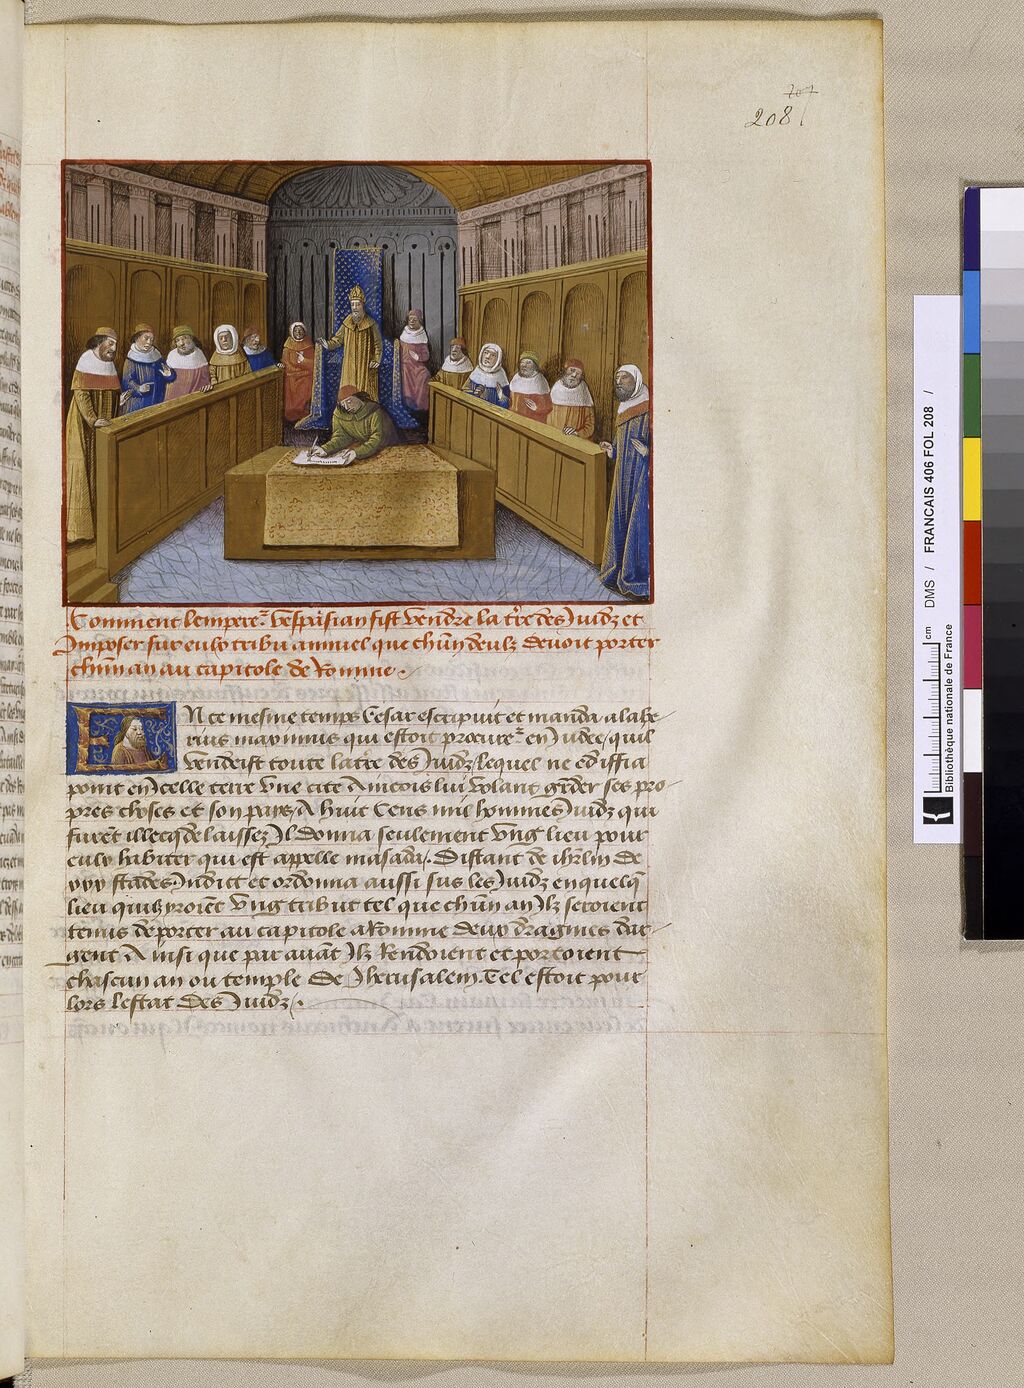 207
208
Comment lemperer̃ vespasian fist vendre la tr̃e des Juidz et
Imposer sur eulx tribu annuel que chũn deulz devoit porter
chũn an au capitole de Romme .
EN ce mesme temps Cesar escripvit et manda a labe
rius maximus qui estoit procurer̃ en Judee, quil
vendist toute la tr̃e des Juidz, lequel ne ediffia
point en Icelle terre une cite Aincois lui volant garder ses pro
pres choses et son pays, A huit Cens mil hommes Juidz qui
furẽt illecq̃ delaissez Il donna seulement ung lieu pour
eulx habiter qui est appelle masada. Distant de ihr̃lm de
xxx stades. Indict et ordonna aussi sus les Juidz en quelq̃
lieu quilz yroiẽt ung tribut tel que chũn an Ilz seroient
tenus de porter au capitole a Romme deux dragmes dar
gent Ainsi que par avãt Ilz Rendoient et portoient
chascun an ou temple de Jherusalem. Tel estoit pour
lors lestat des Juidz .
DMS / FRANCAIS 406 FOL 208 /
cm
Bibliothèque nationale de France